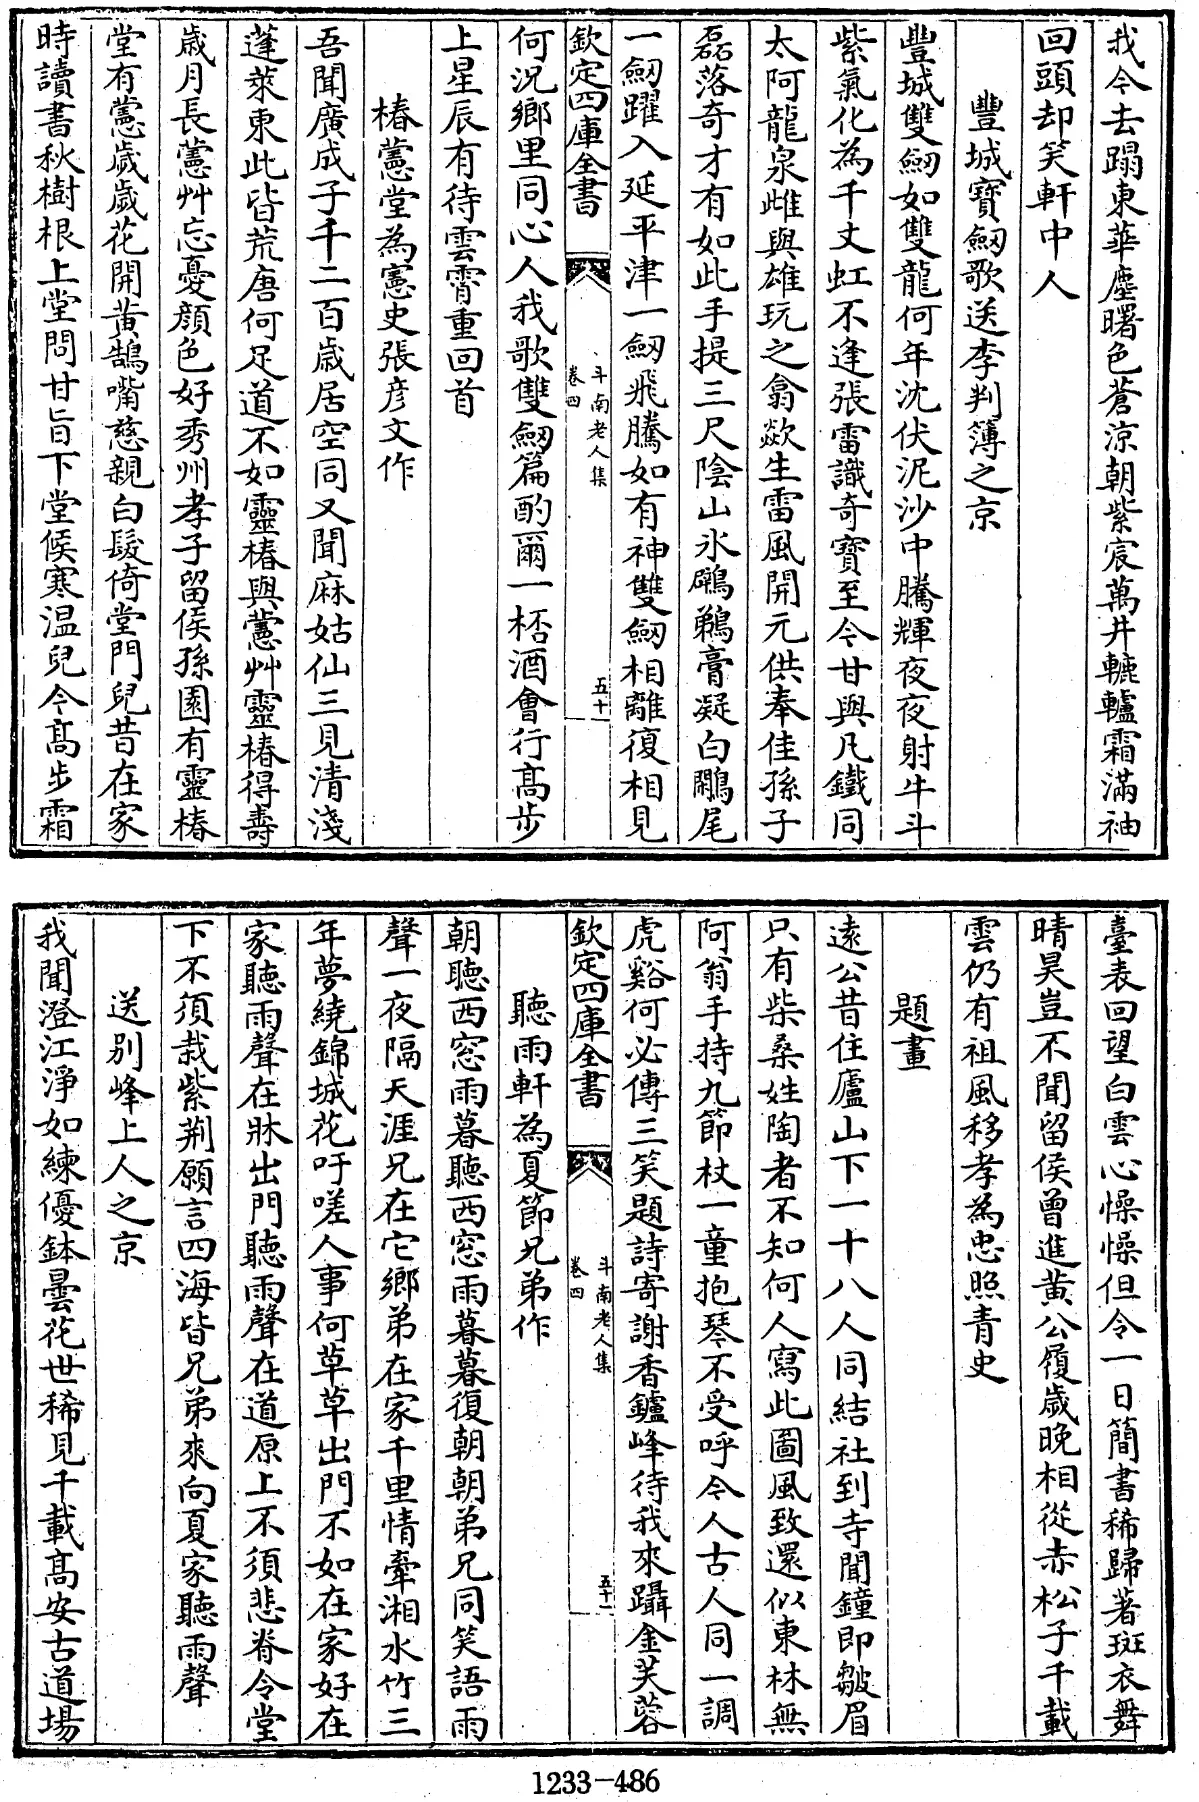 我今去蹋東華塵曙色蒼涼朝紫宸萬井轆轤霜滿袖
回頭却笑軒中人
豐城寶劒歌送李判簿之京
豐城雙劒如雙龍何年沈伏泥沙中騰輝夜夜射牛斗
紫氣化為千丈虹不逢張雷識奇寶至今甘與凡鐵同
太阿龍泉雌與雄玩之翕歘生雷風開元供奉佳孫子
磊落奇才有如此手提三尺陰山氷鸊鵜膏凝白鷳尾
一劒躍入延平津一劒飛騰如有神雙劒相離復相見
欽定四庫全書
斗南老人集
卷四
五十
何況鄉里同心人我歌雙劒篇酌爾一桮酒會行髙步
上星辰有待雲霄重回首
椿藼堂為憲史張彦文作
吾聞廣成子千二百歳居空同又聞麻姑仙三見清淺
蓬萊東此皆荒唐何足道不如靈椿與藼艸靈椿得壽
歳月長藼艸忘憂顔色好秀州孝子留侯孫園有靈椿
堂有藼歲歲花開黃鵠嘴慈親白髮倚堂門兒昔在家
時讀書秋樹根上堂問甘旨下堂候寒温兒今髙步霜
臺表回望白雲心懆懆但令一日簡書稀歸著斑衣舞
晴昊豈不聞留侯曾進黄公履歲晚相從赤松子千載
雲仍有祖風移孝為忠照青史
題畫
遠公昔住廬山下一十八人同結社到寺聞鐘即皺眉
只有柴桑姓陶者不知何人寫此圖風致還似東林無
阿翁手持九節杖一童抱琴不受呼今人古人同一調
虎谿何必傳三笑題詩寄謝香鑪峰待我來躡金芙蓉
欽定四庫全書
斗南老人集
卷四
五十一
聽雨軒為夏節兄弟作
朝聽西窓雨暮聽西窓雨暮暮復朝朝弟兄同笑語雨
聲一夜隔天涯兄在它鄉弟在家千里情牽湘水竹三
年夢繞錦城花吁嗟人事何草草出門不如在家好在
家聽雨聲在牀出門聽雨聲在道原上不須悲脊令堂
下不須哉紫荆願言四海皆兄弟來向夏家聽雨聲
送别峰上人之京
我聞澄江淨如練優鉢曇花世稀見千載髙安古道場
1233-486